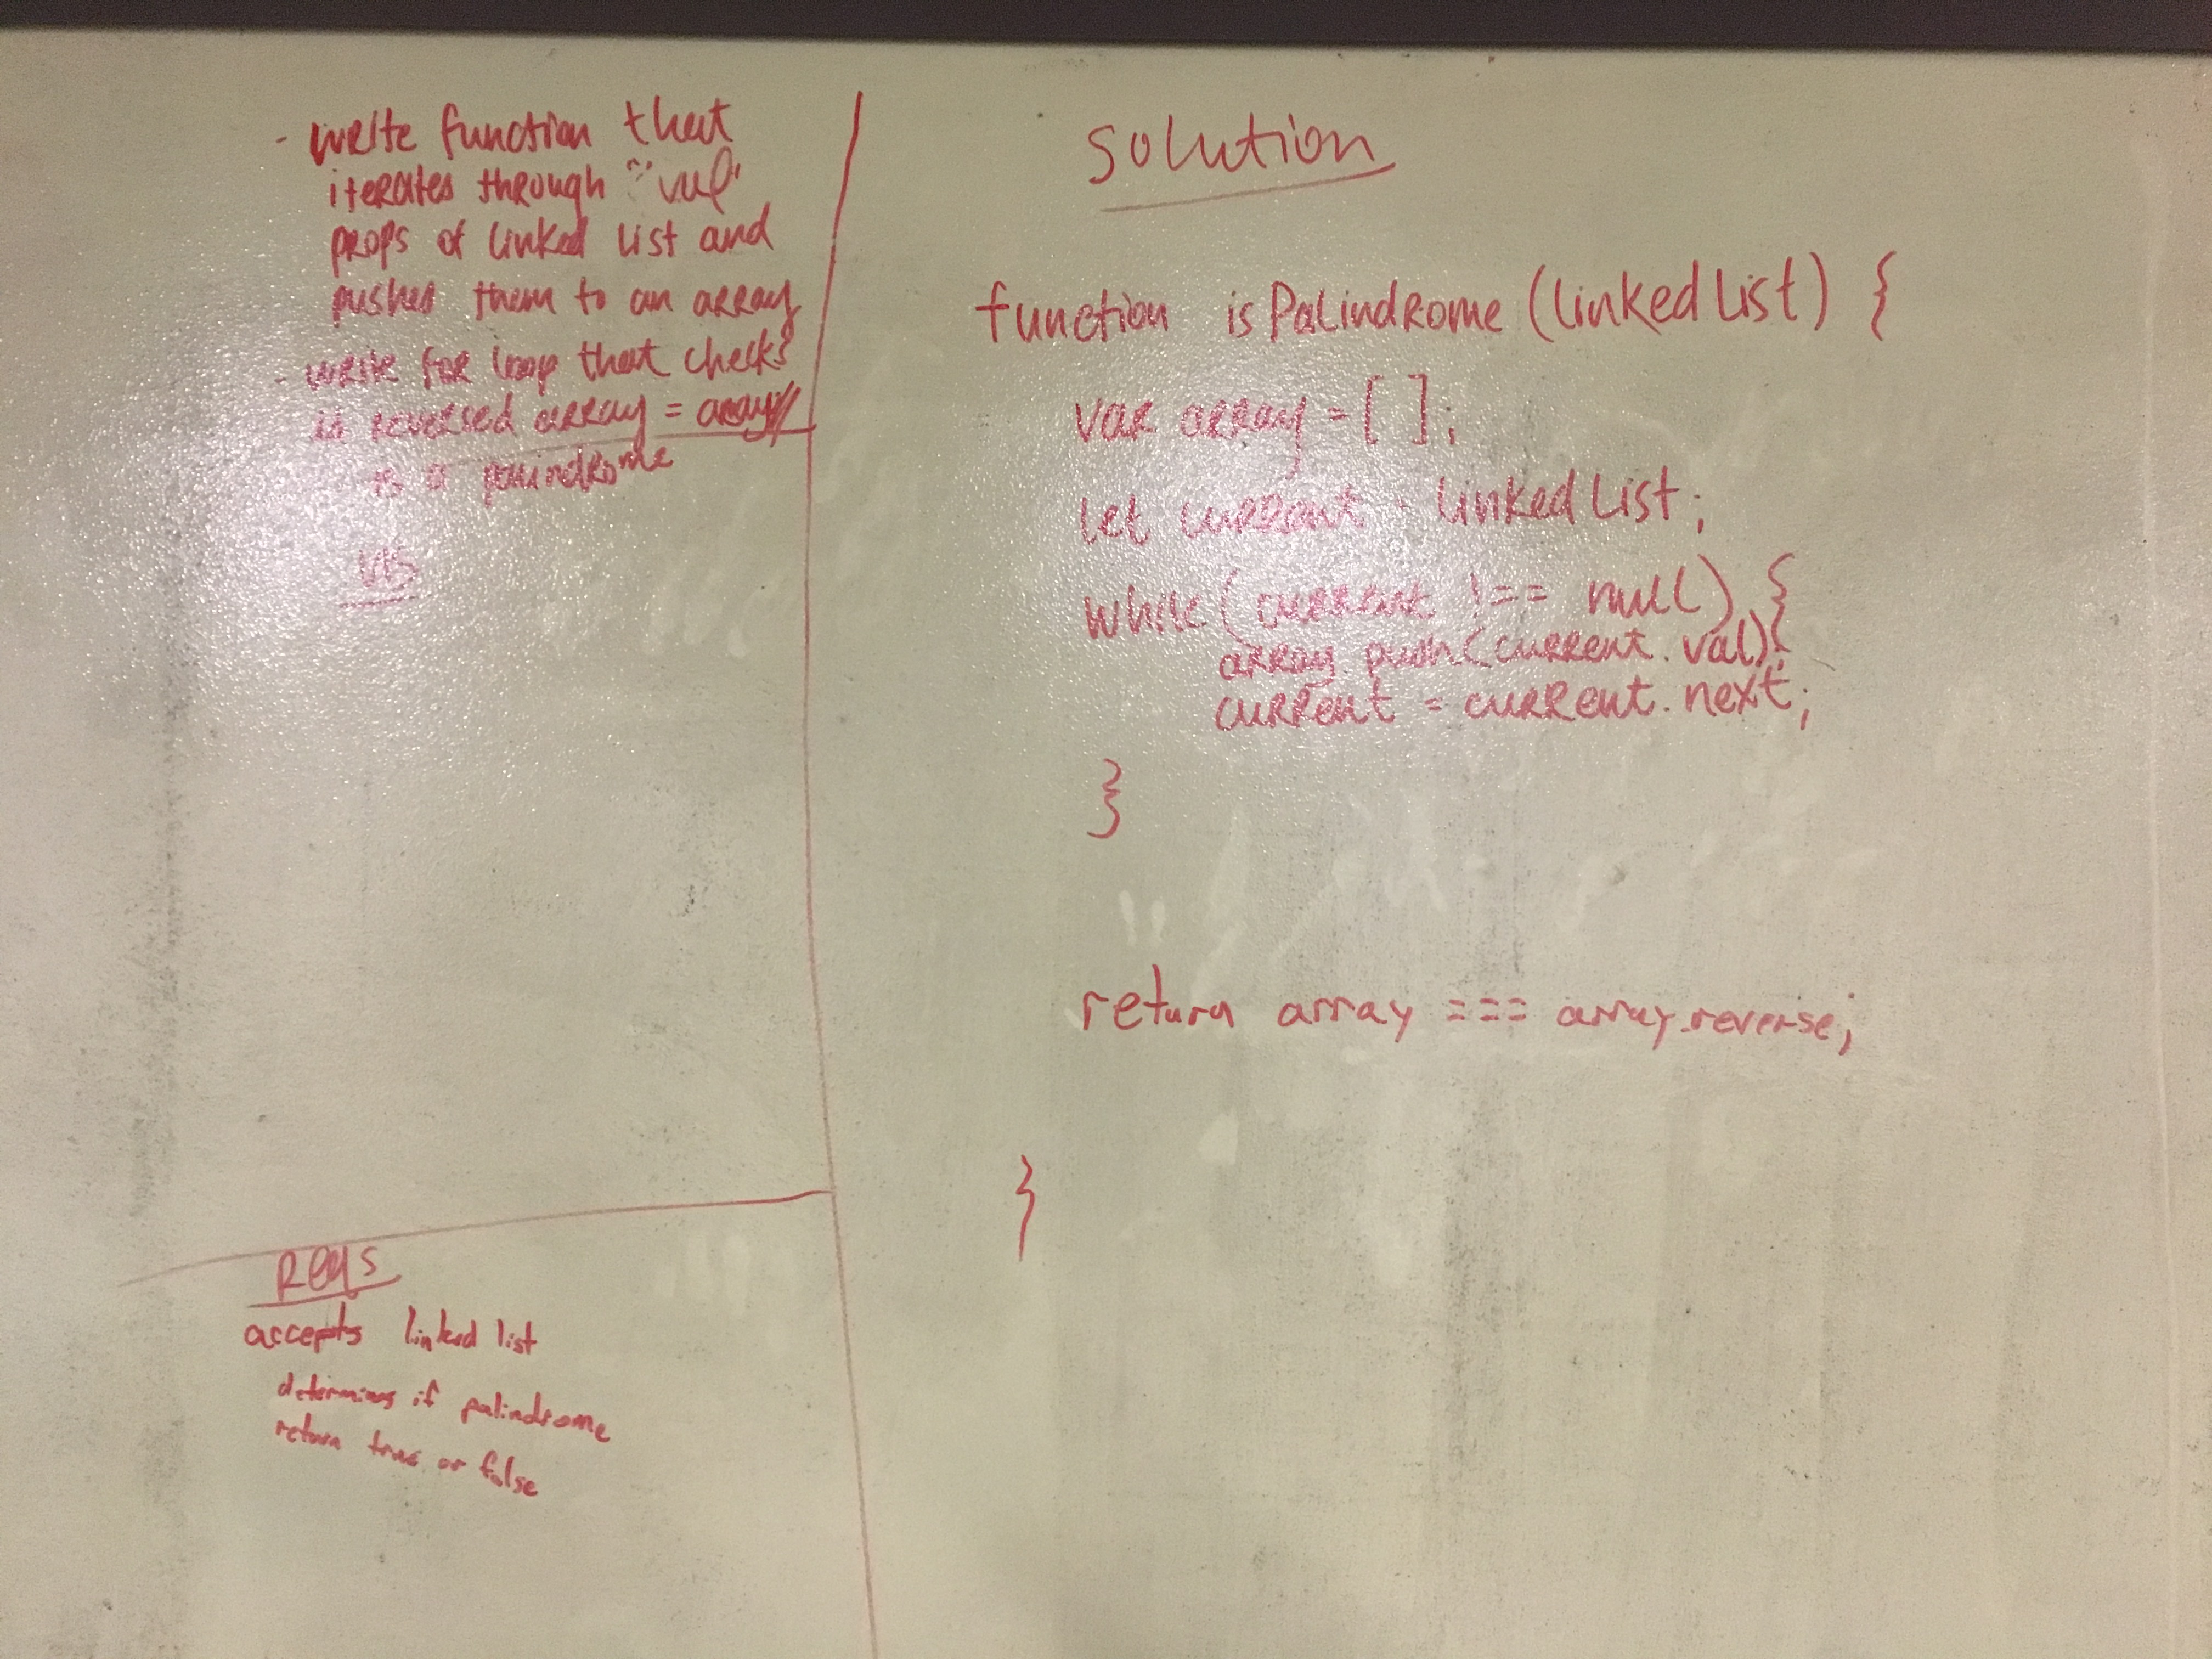 - write function that
iterates through "val"
props of linked list and
pushes them to an array
- write for loop that checks
is reversed array = array
is a palindrome
VIS
Reqs
accepts linked list
determines if palindrome
return true or false
Solution
function isPalindrome (linked List) {
var array = [ ];
let current = linked List;
while (current !== null) {
array.push(current.val);
current = current.next;
}
return array === array.reverse;
}